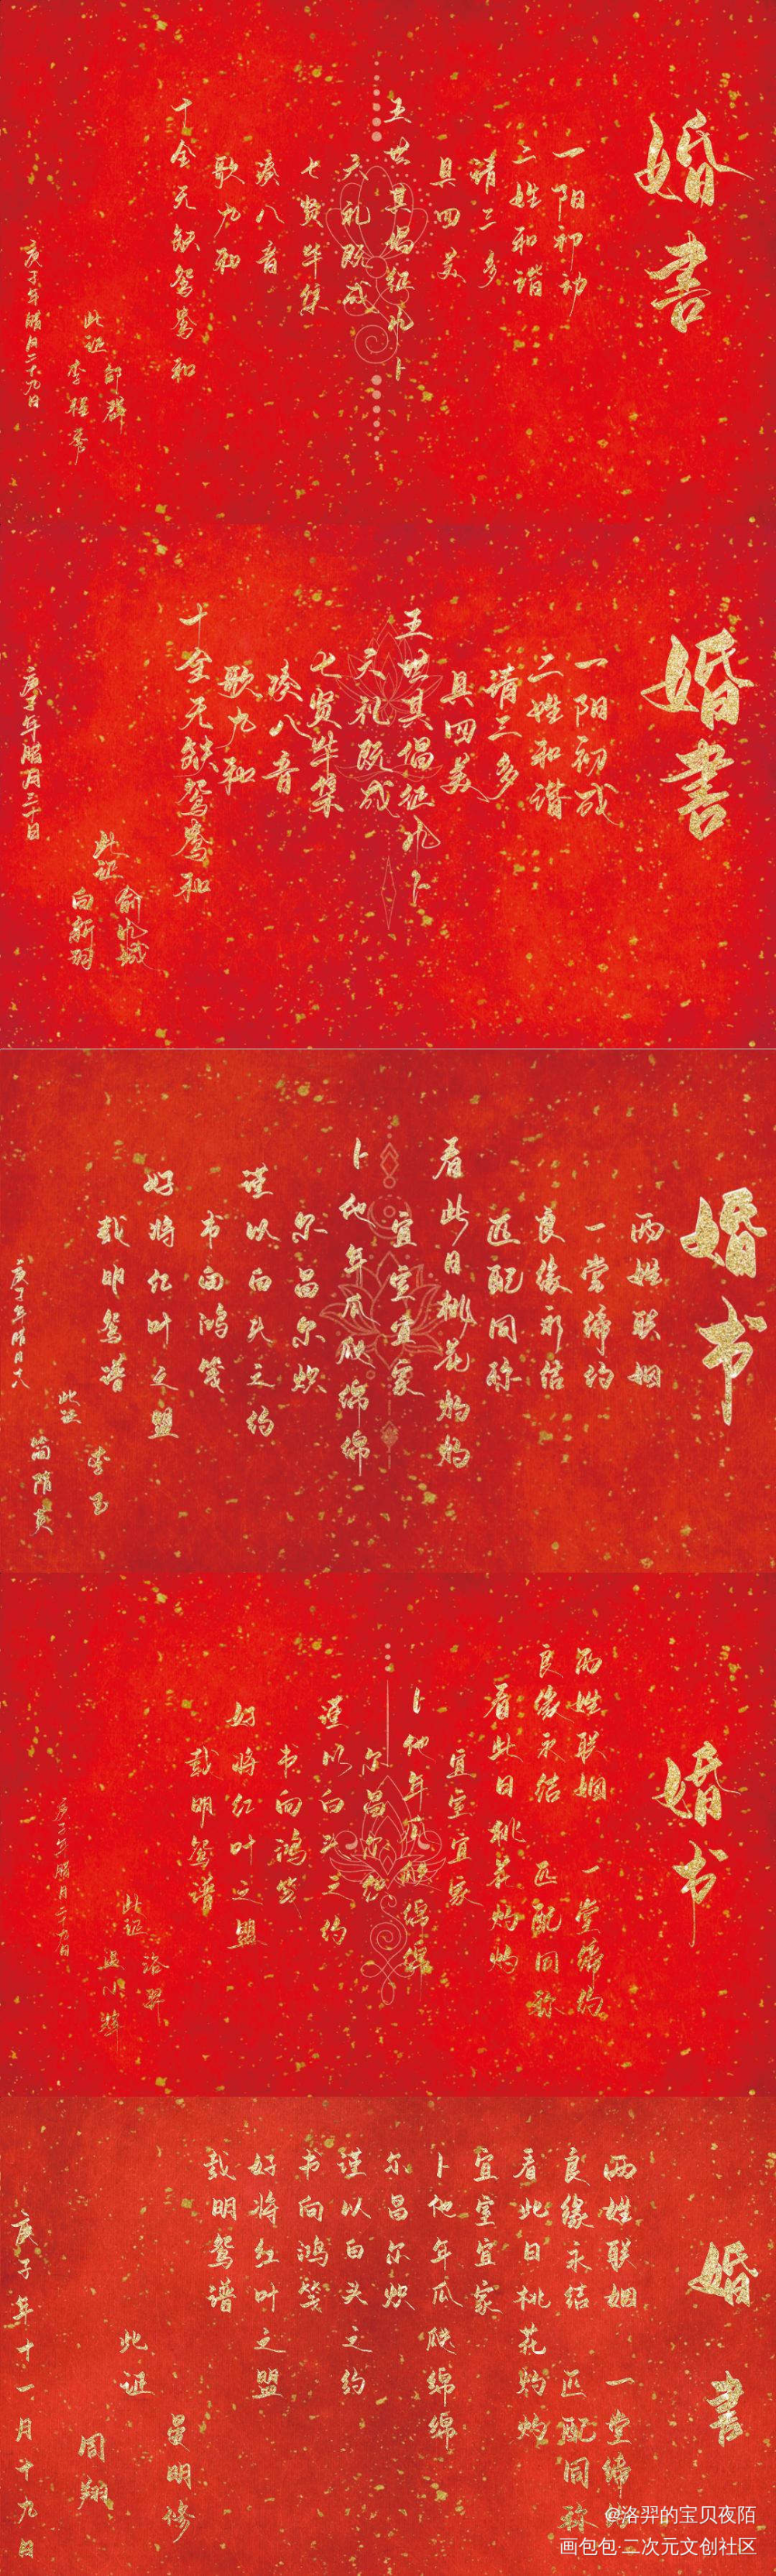 婚書
一阳初动
二姓和谐
请三多
具四美
五世其倡征凤卜
六礼既成
七贤毕集
凑八音
歌九和
十全无缺鸳鸯和
此证
李程秀
邵群
庚子年腊月二十九日
婚書
一阳初成
二姓和谐
请三多
具四美
五世其倡征凤卜
六礼既成
七贤毕集
凑八音
歌九和
十全无缺鸳鸯和
此证
俞风城
白新羽
庚子年腊月二十日
婚书
两姓联姻
一堂缔约
良缘永结
匹配同称
看此日桃花灼灼
宜室宜家
卜他年瓜瓞绵绵
尔昌尔炽
谨以白头之约
书向鸿笺
好将红叶之盟
载明鸳谱
此证
李玉
简隋英
庚子年腊月十八
婚书
两姓联姻 一堂缔约
良缘永结 匹配同称
看此日桃花灼灼
宜室宜家
卜他年瓜瓞绵绵
尔昌尔炽
谨以白头之约
书向鸿笺
好将红叶之盟
载明鸳谱
此证
洛羿
温小辉
庚子年腊月二十九日
婚書
两姓联姻 一堂缔约
良缘永结 匹配同称
看此日桃花灼灼
宜室宜家
卜他年瓜瓞绵绵
尔昌尔炽
谨以白头之约
书向鸿笺
好将红叶之盟
载明鸳谱
此证
晏明修
周翔
庚子年十一月十九日
@洛羿的宝贝夜陌
画包包·二次元文创社区